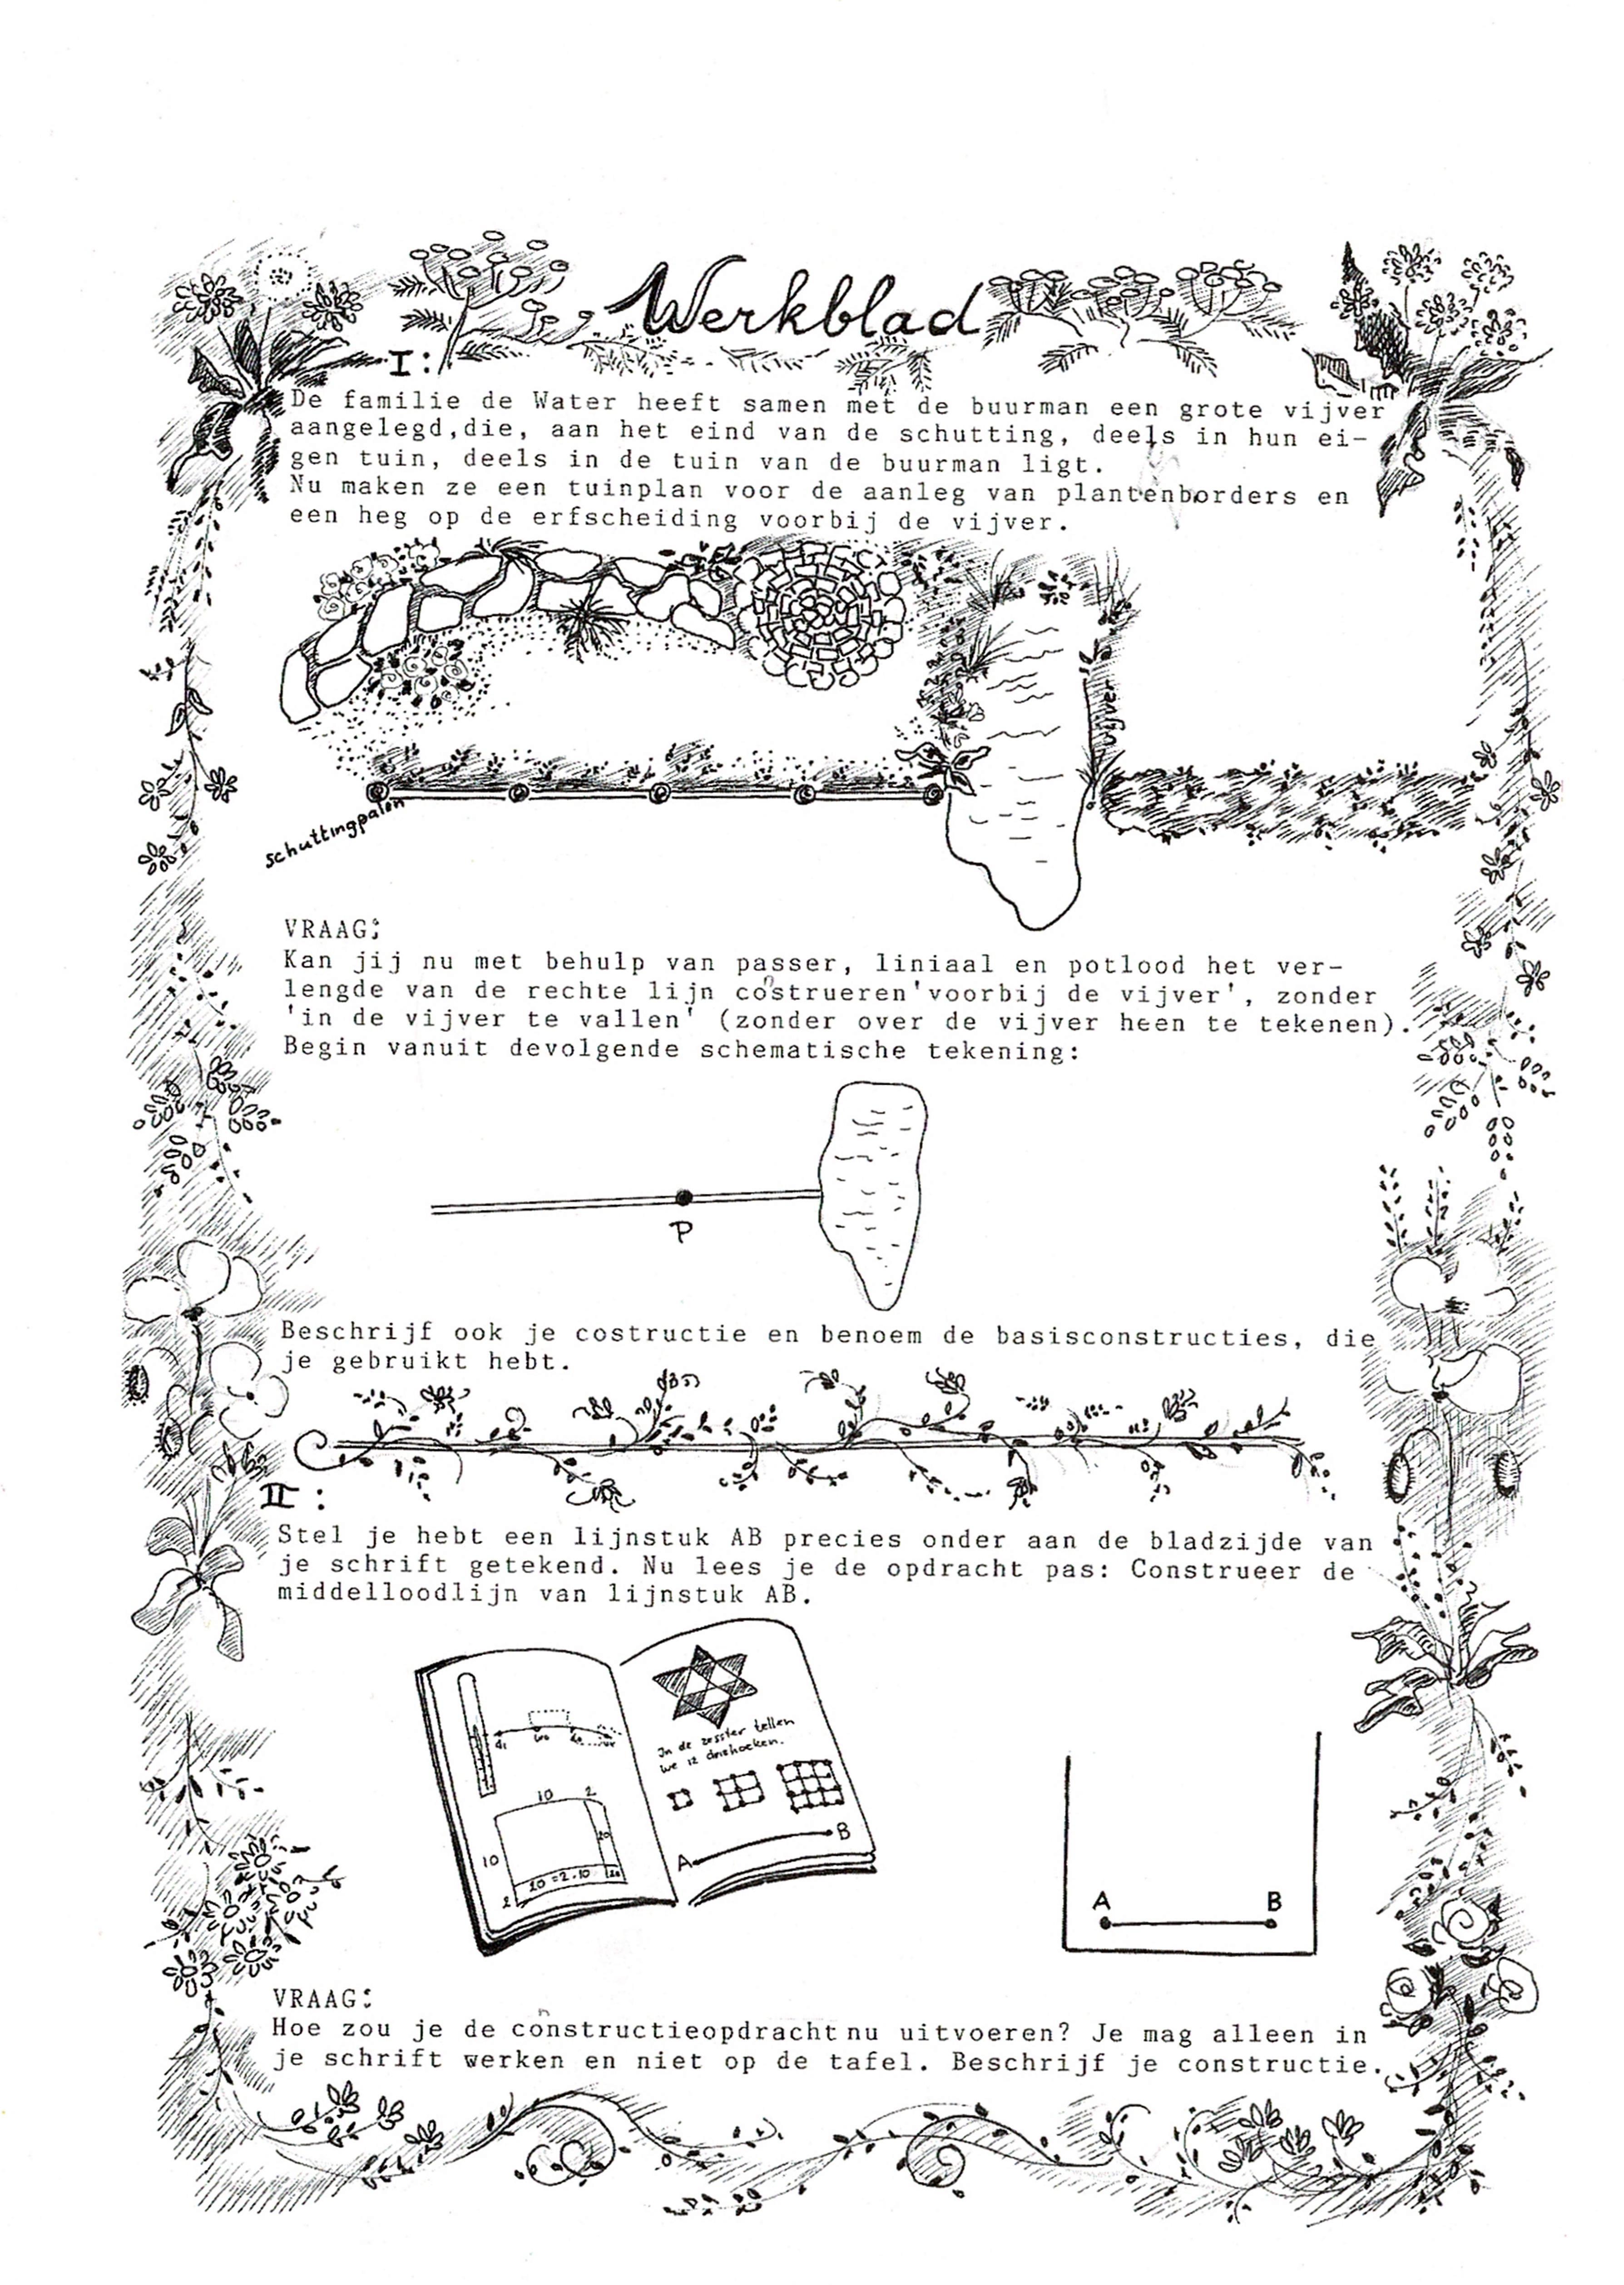 Werkblad
I:
De familie de Water heeft samen met de buurman een grote vijver
aangelegd,die, aan het eind van de schutting, deels in hun ei-
gen tuin, deels in de tuin van de buurman ligt.
Nu maken ze een tuinplan voor de aanleg van plantenborders en
een heg op de erfscheiding voorbij de vijver.
vijver
schuttingpalen
VRAAG:
Kan jij nu met behulp van passer, liniaal en potlood het ver-
lengde van de rechte lijn construeren'voorbij de vijver', zonder
'in de vijver te vallen' (zonder over de vijver heen te tekenen).
Begin vanuit devolgende schematische tekening:
P
Beschrijf ook je costructie en benoem de basisconstructies, die
je gebruikt hebt.
II:
Stel je hebt een lijnstuk AB precies onder aan de bladzijde van
je schrift getekend. Nu lees je de opdracht pas: Construeer de
middelloodlijn van lijnstuk AB.
In de zesster tellen
we 12 driehoeken.
10 2
20
10
20=2.10
2
A B
A B
VRAAG:
Hoe zou je de constructieopdracht nu uitvoeren? Je mag alleen in
je schrift werken en niet op de tafel. Beschrijf je constructie.